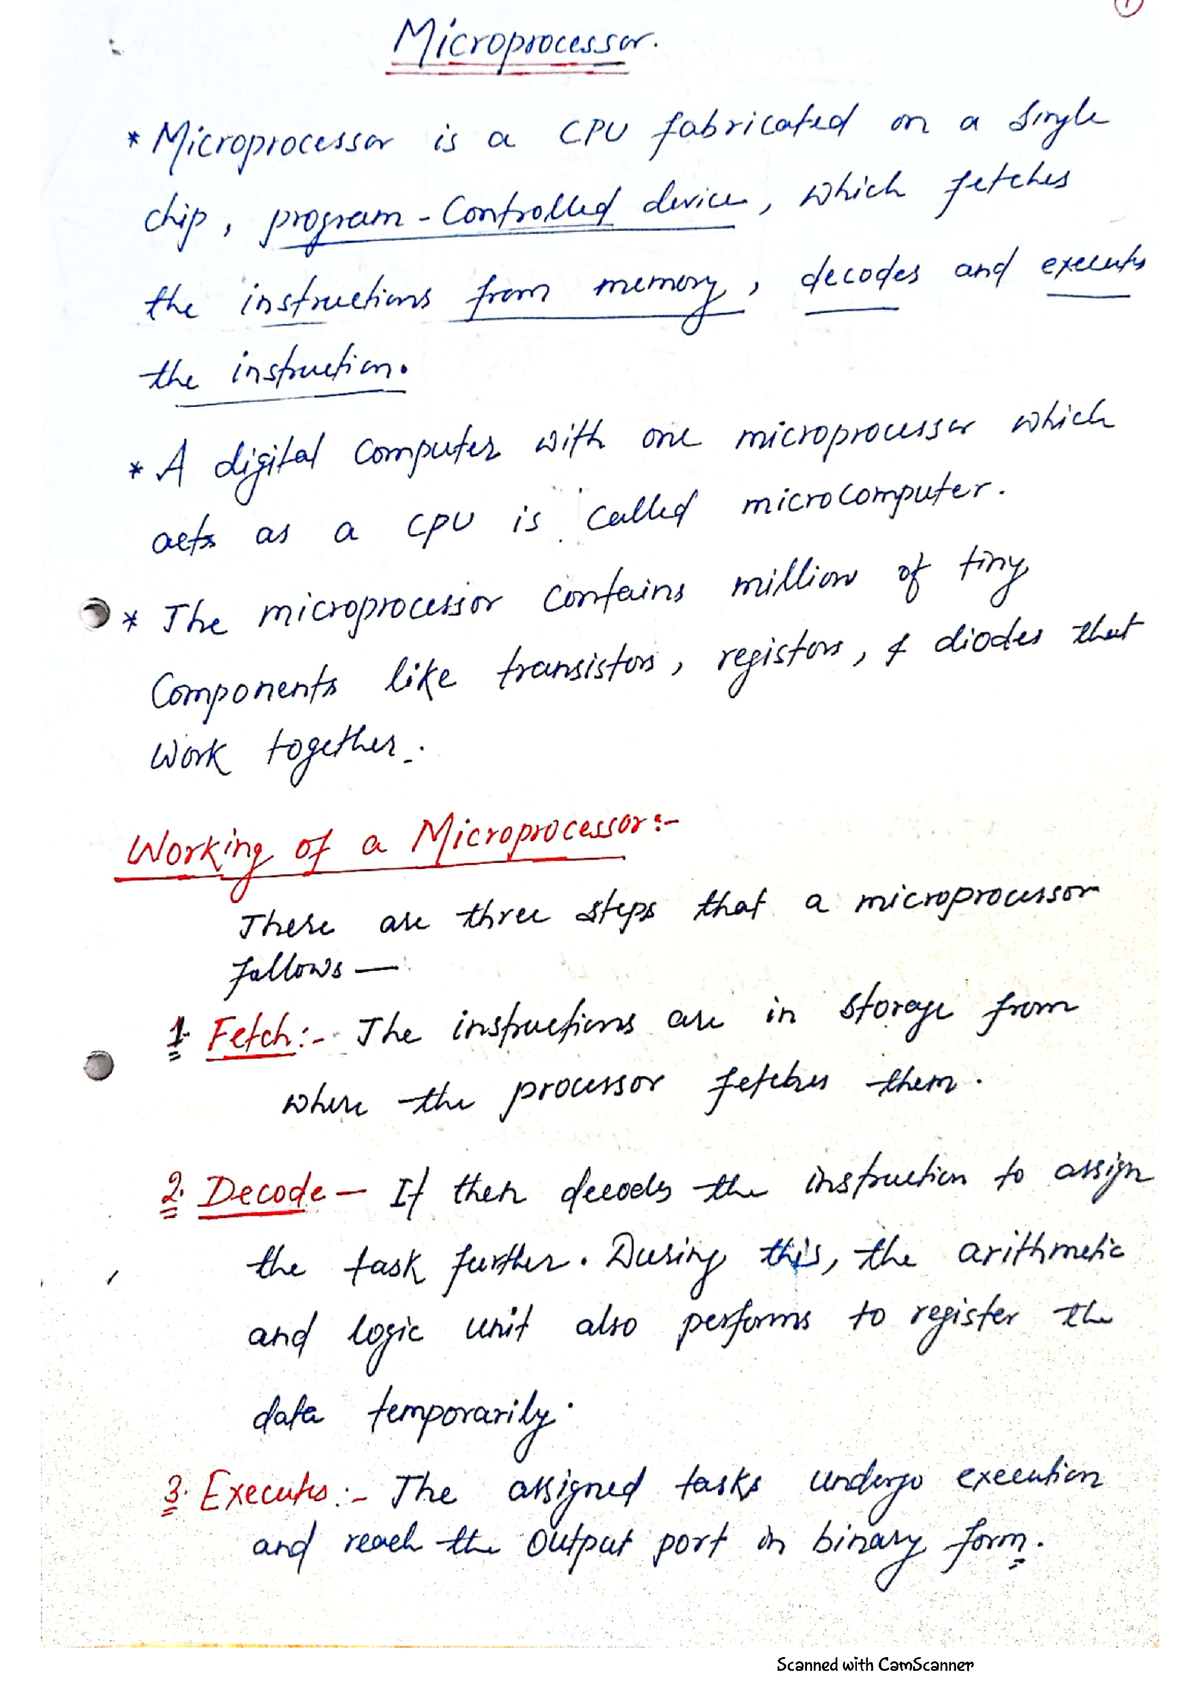 1
Microprocessor.
* Microprocessor is a CPU fabricated on a single
chip, program-Controlled device, which fetches
the instructions from memory, decodes and executes
the instruction.
* A digital Computer with one microprocessor which
acts as a CPU is called microcomputer.
* The microprocessor contains million of tiny
Components like transistors, registors, & diodes that
work together.
Working of a Microprocessor:-
There are three steps that a microprocessor
follows —
1. Fetch:- The instructions are in storage from
where the processor fetches them.
2. Decode — It then decodes the instruction to assign
the task further. During this, the arithmetic
and logic unit also performs to register the
data temporarily.
3. Executes:- The assigned tasks undergo execution
and reach the output port in binary form.
Scanned with CamScanner